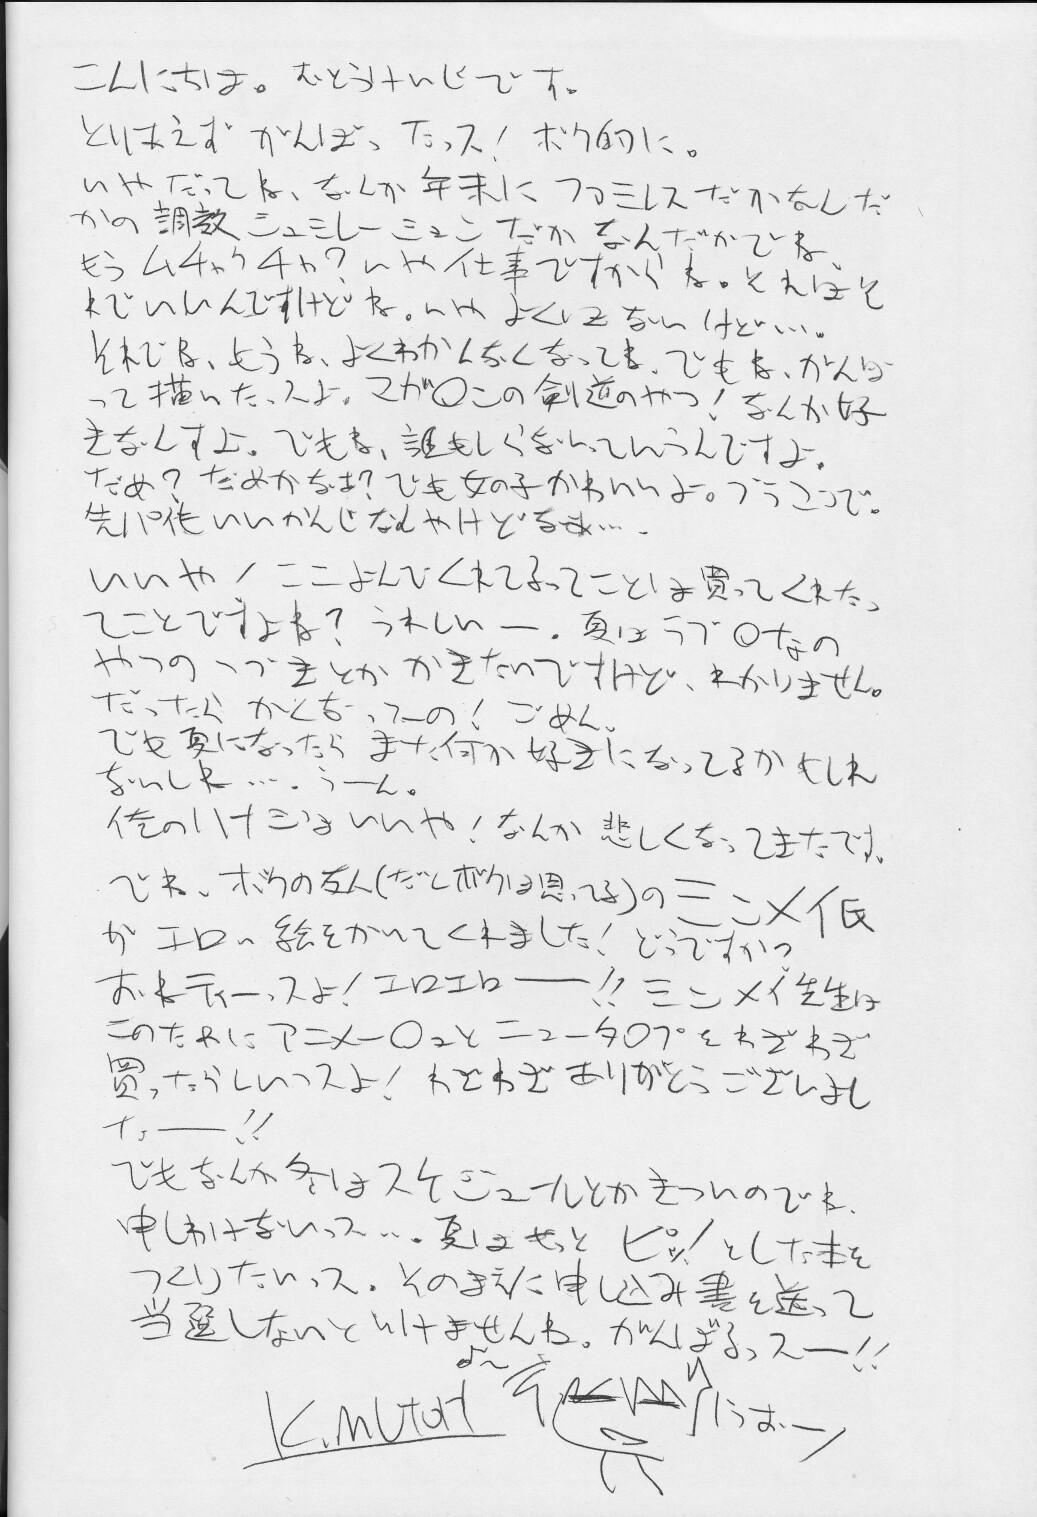 こんにちは。むとうけいじです。
とりあえずがんばったっス!ボク的に。
いやだってね、なんか年末にファミレスだかなんだ
かの調教シュミレーションだかなんだかでね、
もうムチャクチャ?いや仕事ですからね。それはそ
れでいいんですけどね。いやよくはないけど…。
それでね、もうね、よくわかんなくなってね、でもね、がんば
って描いたっスよ。マガ〇この剣道のやつ!なんか好
きなんすよ。でもね、誰もしらないっていうんですよ。
だめ?だめかなぁ?でも女の子かわいいよ。ブラコンで。
先パイもいいかんじなんやけどなぁ…。
いいや!ここよんでくれてるってことは買ってくれたっ
てことですよね?うれしいー。夏はラブ〇なの
やつのつづきとかかきたいですけど、わかりません。
だったらかくなってーの!ごめん。
でも夏になったらまた何か好きになってるかもしれ
ないしね…。うーん。
俺のハナシはいいや!なんか悲しくなってきたです。
でね、ボクの友人(だとボクは思ってる)のミンメイ氏
がエロい絵をかいてくれました!どうですかっ
おねティーっスよ!エロエロー!!ミンメイ先生は
このためにアニメー〇ュとニュータ〇プをわざわざ
買ったらしいっスよ!わざわざありがとうございまし
たー!!
でもなんか冬はスケジュールとかきついのでね、
申しわけないっス…。夏はもっとピッ!とした本を
つくりたいっス。そのまえに申し込み書を送って
当選しないといけませんね。がんばるっスー!!
K.MUTOH